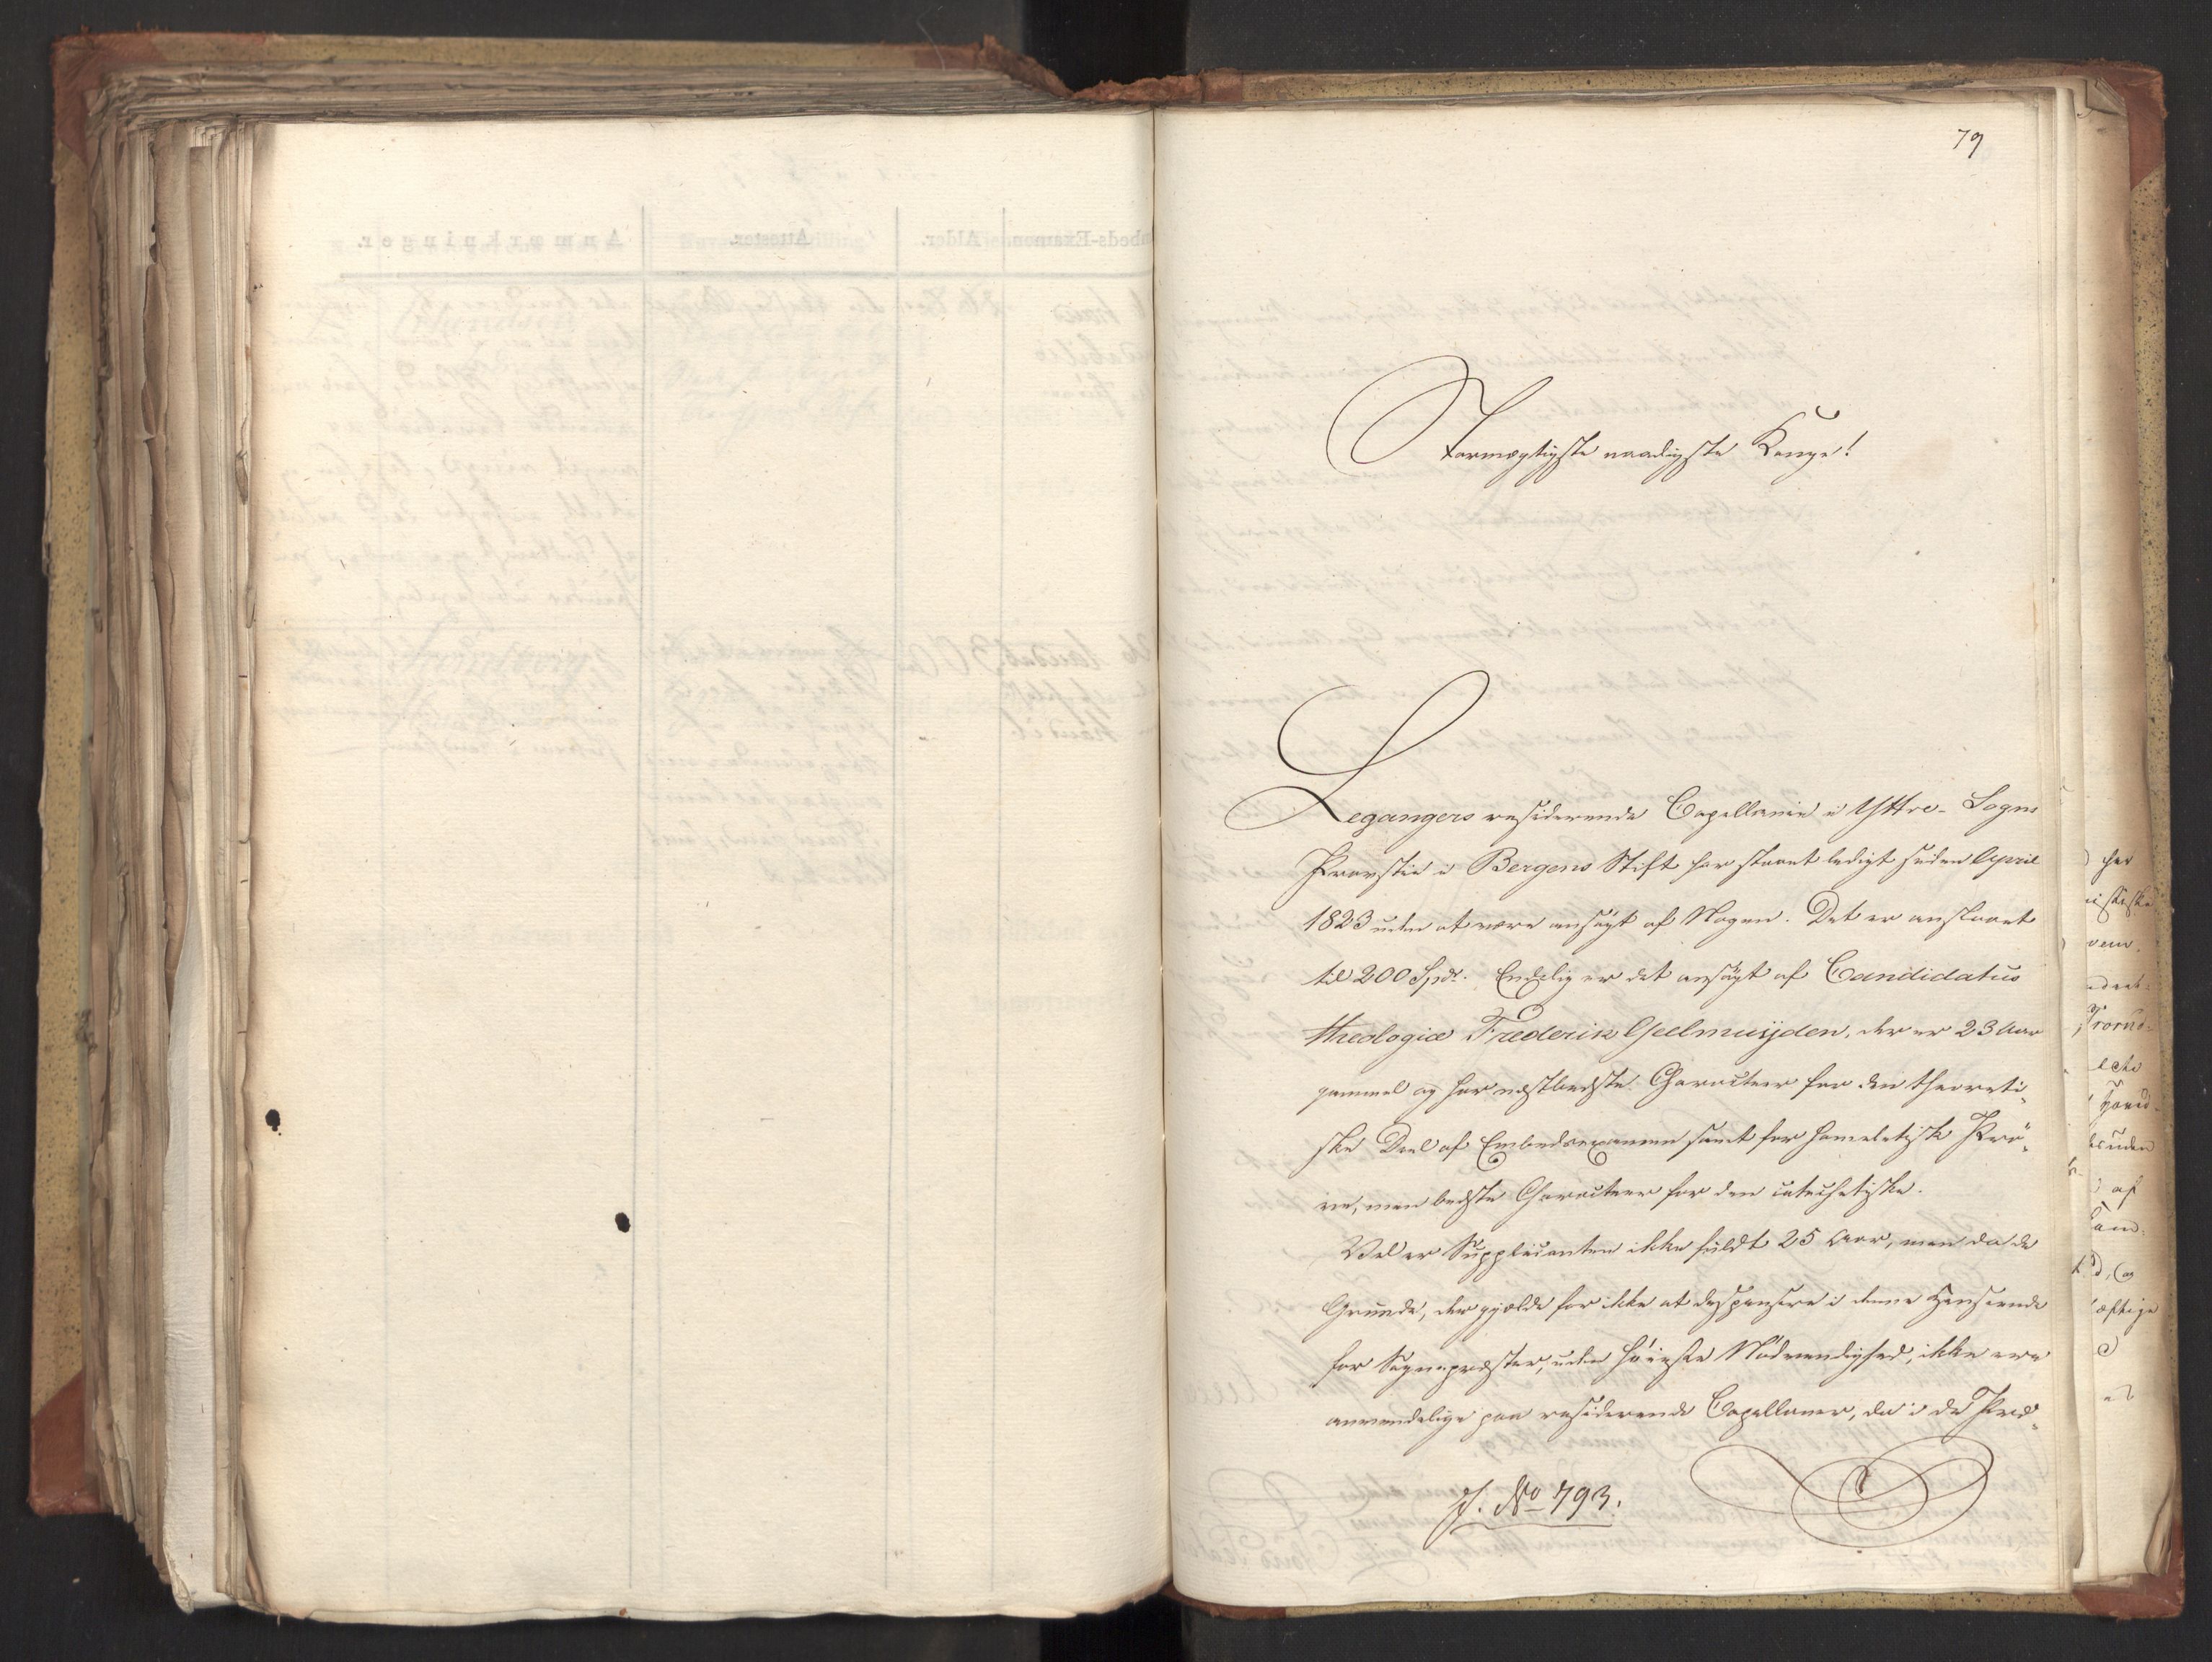 79
Stormægtigste naadigste Konge!
Legangers residerende Capellanie i Yttre-Sogns
Provstie i Bergens Stift har staaet ledigt siden April
1823 uden at være ansögt af Nogen. Det er anslaaet
til 200 Spdr. Endelig er det ansögt af Candidatus
theologiæ Frederik Geelmuijden, der er 23 Aar
gammel og har næstbedste Charackteer for den theoreti-
ske Deel af Embedsexamen samt for homeletiske Prö-
ve, men bedste Charackteer for den catechetiske.
Vel er Supplicanten ikke fuldt 25 Aar, men da de
Grunde, der gjælde for ikke at dispensere i denne Henseende
for Sognepræster, uden höieste Nödvendighed, ikke ere
anvendelige paa residerende Capellaner, da i de Præ-
J. No 793.